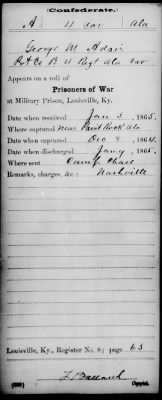 (Confederate.)
A 11 Cav Ala
George M. Adair
Pvt Co B 11 Regt Ala Cav
Appears on a roll of
Prisoners of War
at Military Prison, Louisville, Ky.
Date when received Jan 3, 1865
Where captured Near Paint Rock Ala
Date when captured Dec 8, 1864.
Date when discharged Jany, 1865.
Where sent Camp Chase
Remarks, charges, &c.: Nashville
Louisville, Ky., Register No. 8; page 63